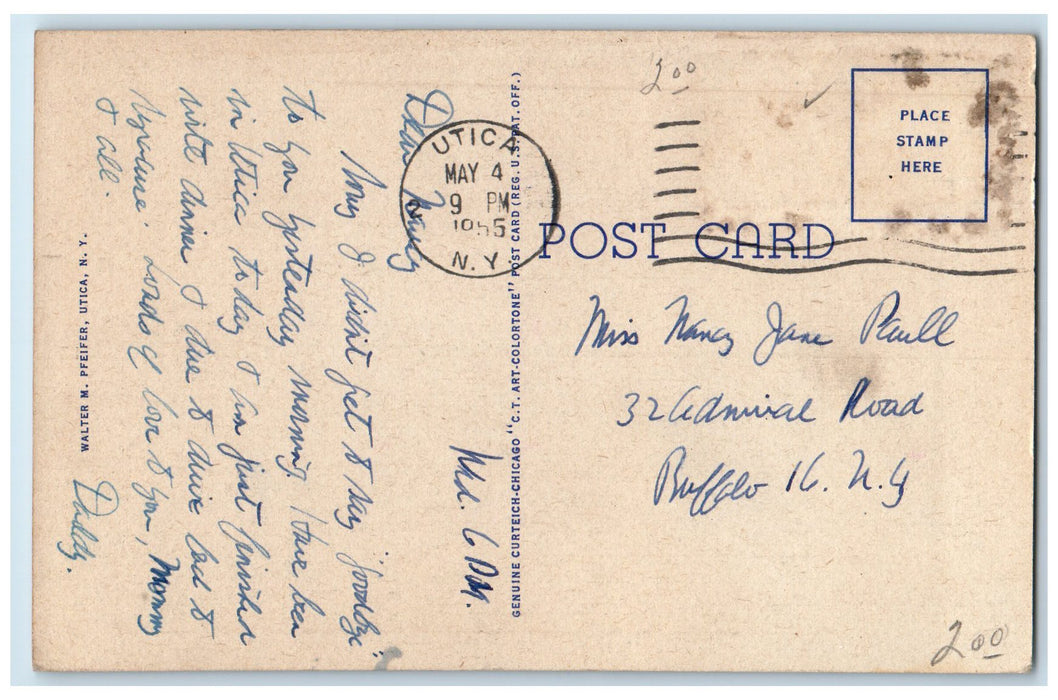 Wed. 6 PM.
Dear Nancy
Sorry I didn't get to say 'goodbye'
to you yesterday morning. Have been
in Utica today & am just finished
with dinner & due to drive back to
Syracuse. Loads of love to you, Mommy
& all.
Daddy.
WALTER M. PFEIFER, UTICA, N. Y.
GENUINE CURTEICH-CHICAGO "C.T. ART-COLORTONE" POST CARD (REG. U.S. PAT. OFF.)
UTICA
MAY 4
9 PM
1955
N.Y.
2 00
PLACE
STAMP
HERE
POST CARD
Miss Nancy Jane Paull
32 Admiral Road
Buffalo 16. N.Y
2.00